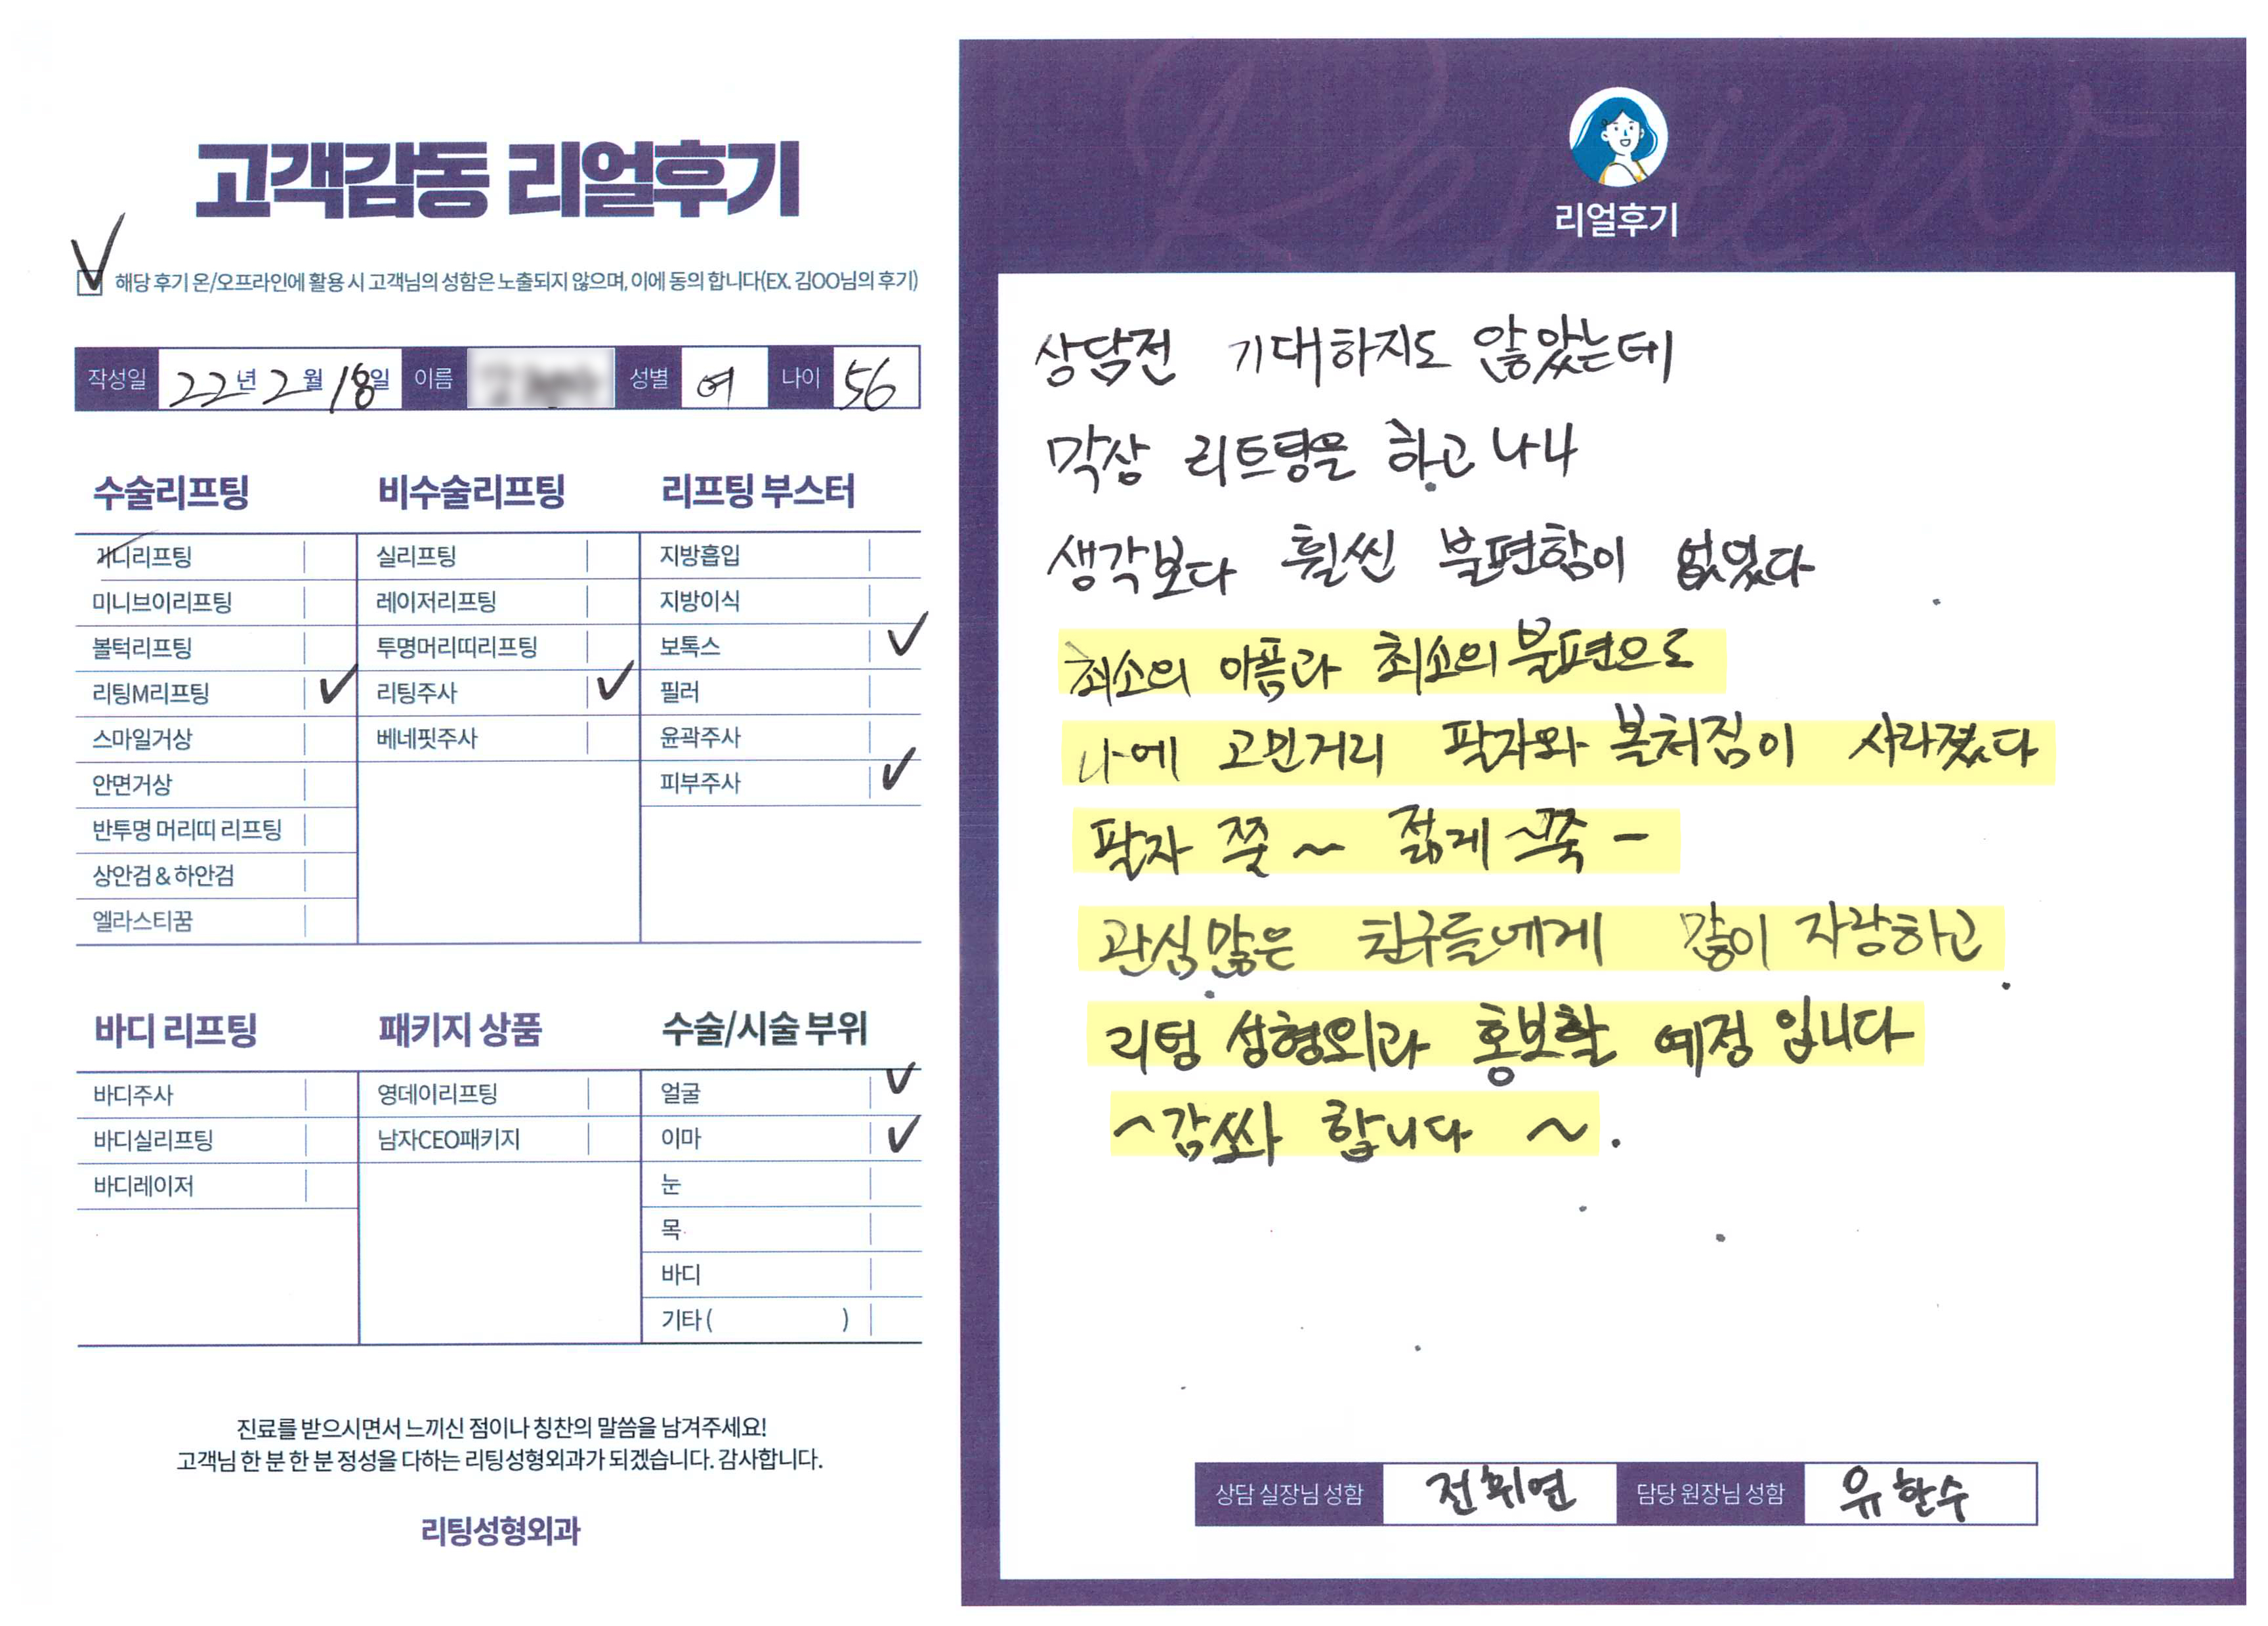 고객감동 리얼후기
해당 후기 온/오프라인에 활용 시 고객님의 성함은 노출되지 않으며, 이에 동의 합니다(EX. 김OO님의 후기)
작성일 22년 2월 18일 이름 성별 여 나이 56
수술리프팅
미니리프팅
미니브이리프팅
볼턱리프팅
리팅M리프팅
스마일거상
안면거상
반투명 머리띠 리프팅
상안검 & 하안검
엘라스티꿈
비수술리프팅
실리프팅
레이저리프팅
투명머리띠리프팅
리팅주사
베네핏주사
리프팅 부스터
지방흡입
지방이식
보톡스
필러
윤곽주사
피부주사
바디 리프팅
바디주사
바디실리프팅
바디레이저
패키지 상품
영데이리프팅
남자CEO패키지
수술/시술 부위
얼굴
이마
눈
목
바디
기타 ( )
진료를 받으시면서 느끼신 점이나 칭찬의 말씀을 남겨주세요!
고객님 한 분 한 분 정성을 다하는 리팅성형외과가 되겠습니다. 감사합니다.
리팅성형외과
Review
리얼후기
상담전 기대하지도 않았는데
막상 리트팅을 하고 나니
생각보다 훨씬 불편함이 없었다
최소의 아픔과 최소의 불편으로
나에 고민거리 팔자와 볼처짐이 사라졌다
팔자 쭉 ~ 젊게 쭉 -
관심많은 친구들에게 많이 자랑하고
리팅 성형외과 홍보할 예정 입니다
~감쏴 합니다 ~.
상담 실장님 성함 전휘연 담당 원장님 성함 유한수